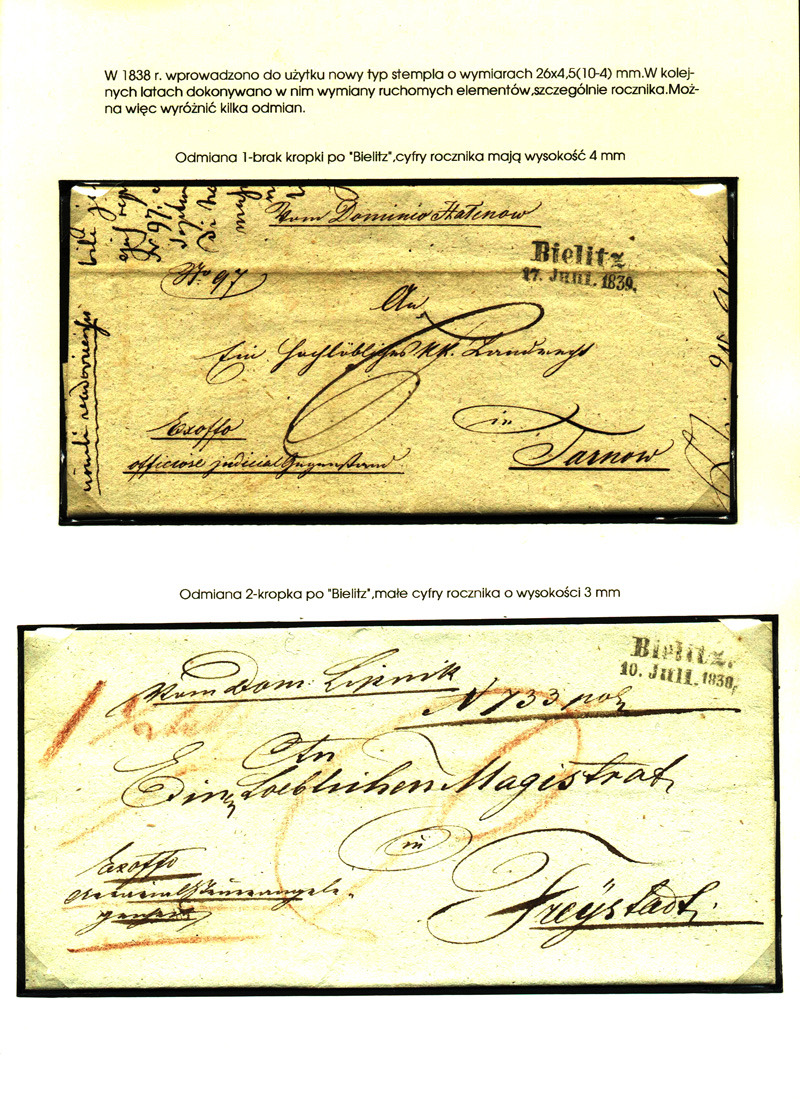 W 1838 r. wprowadzono do użytku nowy typ stempla o wymiarach 26x4,5(10-4) mm.W kolej-
nych latach dokonywano w nim wymiany ruchomych elementów,szczególnie rocznika.Moż-
na więc wyróżnić kilka odmian.
Odmiana 1-brak kropki po "Bielitz",cyfry rocznika mają wysokość 4 mm
Vom Dominio
Bielitz
17. Juni. 1839.
No 97
An
Ein Hochlöbliches kk. Landrecht
Exoffo
in
officiose judicial Gegenstand
Tarnow
Odmiana 2-kropka po "Bielitz",małe cyfry rocznika o wysokości 3 mm
Bielitz.
10. Juli. 1839.
Vom Dom: Lipnik
N 733 pol
An
Einen Loeblichen Magistrat
in
Exoffo
Freÿstadt.